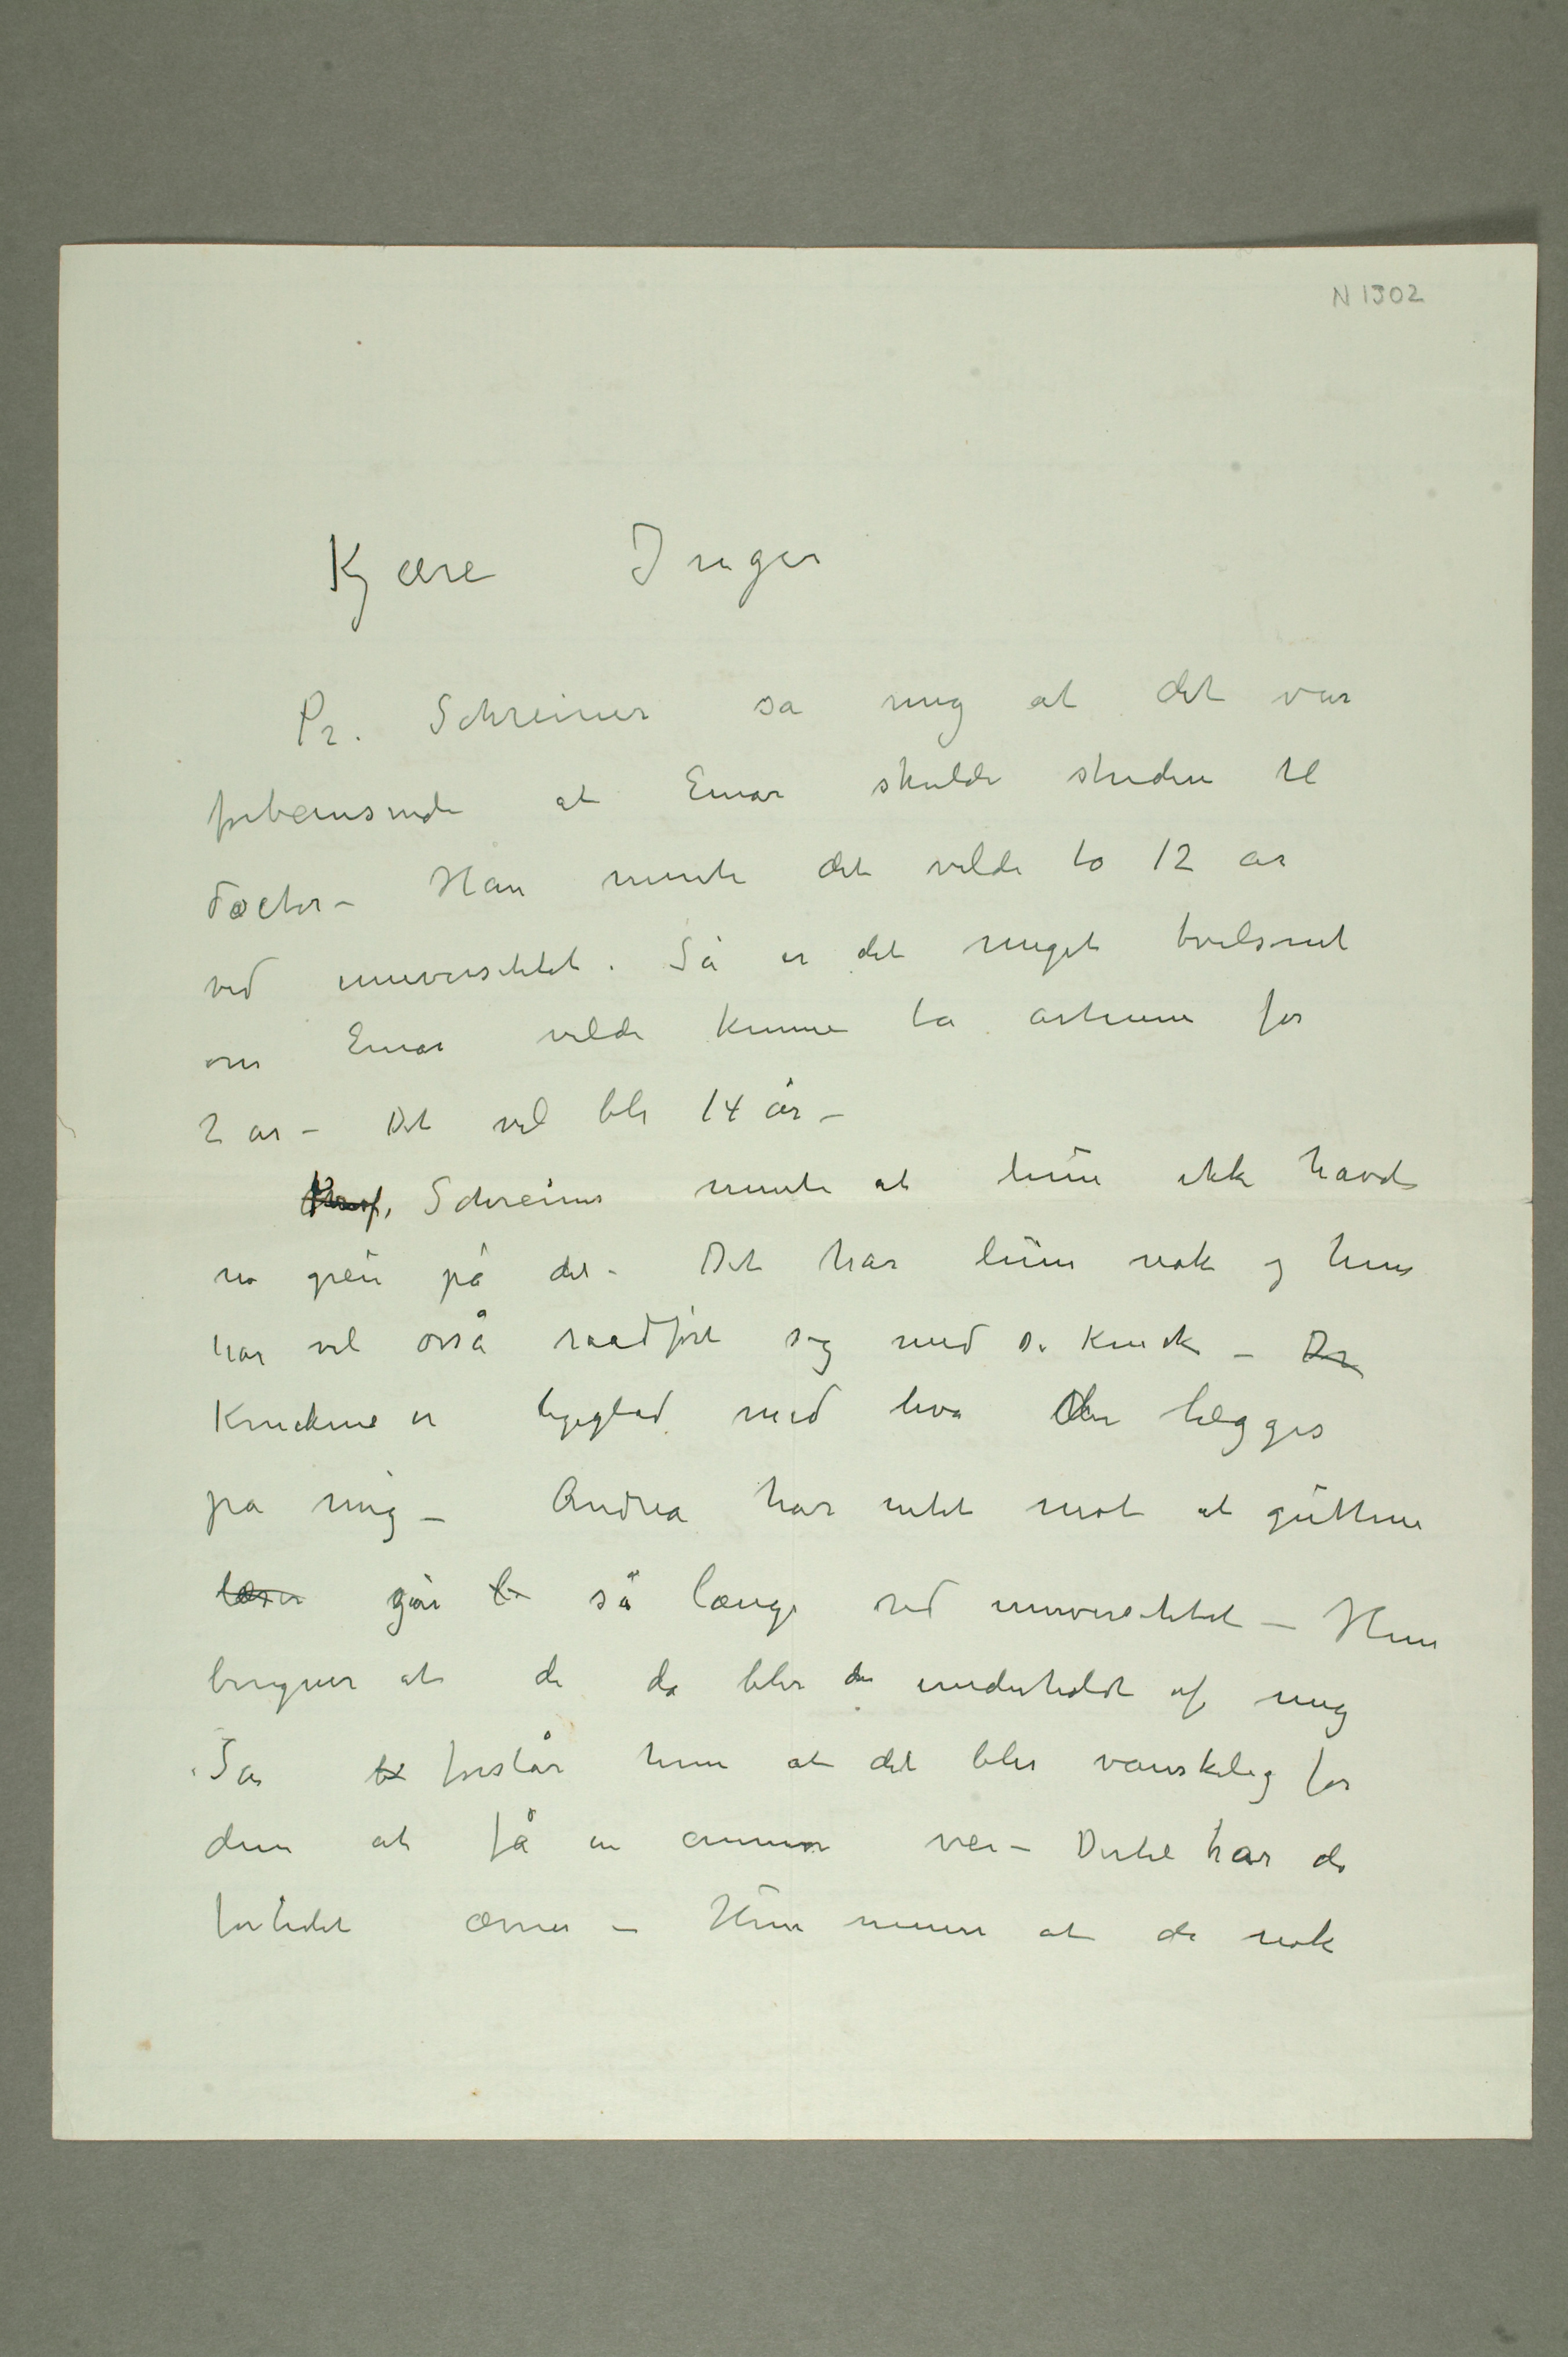 N 1302
Kjære Inger
Pr. Schreiner sa mig at det var
forbausende at Einar skulde studere til
doctor – Han mente det vilde ta 12 år
ved universitetet. Så er det meget tvilsomt
om Einar vilde kunne ta artium for
2 år – Det vil bli 14 år –
Prof. Schreiner mente at hun ikke havde
no greie på det – Det har hun nok og hun
har vel osså raadført sig med Dr Kinck – Dr
Kinckene er ligeglad med hva der lægges
på mig – Andrea har intet mot at guttene
læser går så længe ved universitetet – Hun
beregner at de da blir underholdt af mig
Så forstår hun at det blir vanskelig for
dem at få en annen vei – Dertil har de
for lidet ævner – Hun mener at de nok